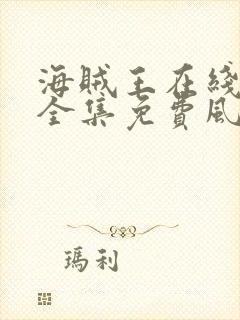 海贼王在綫
全集免費風
瑪利